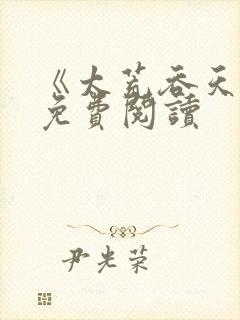 《大荒吞天
免費閱讀
尹光荣